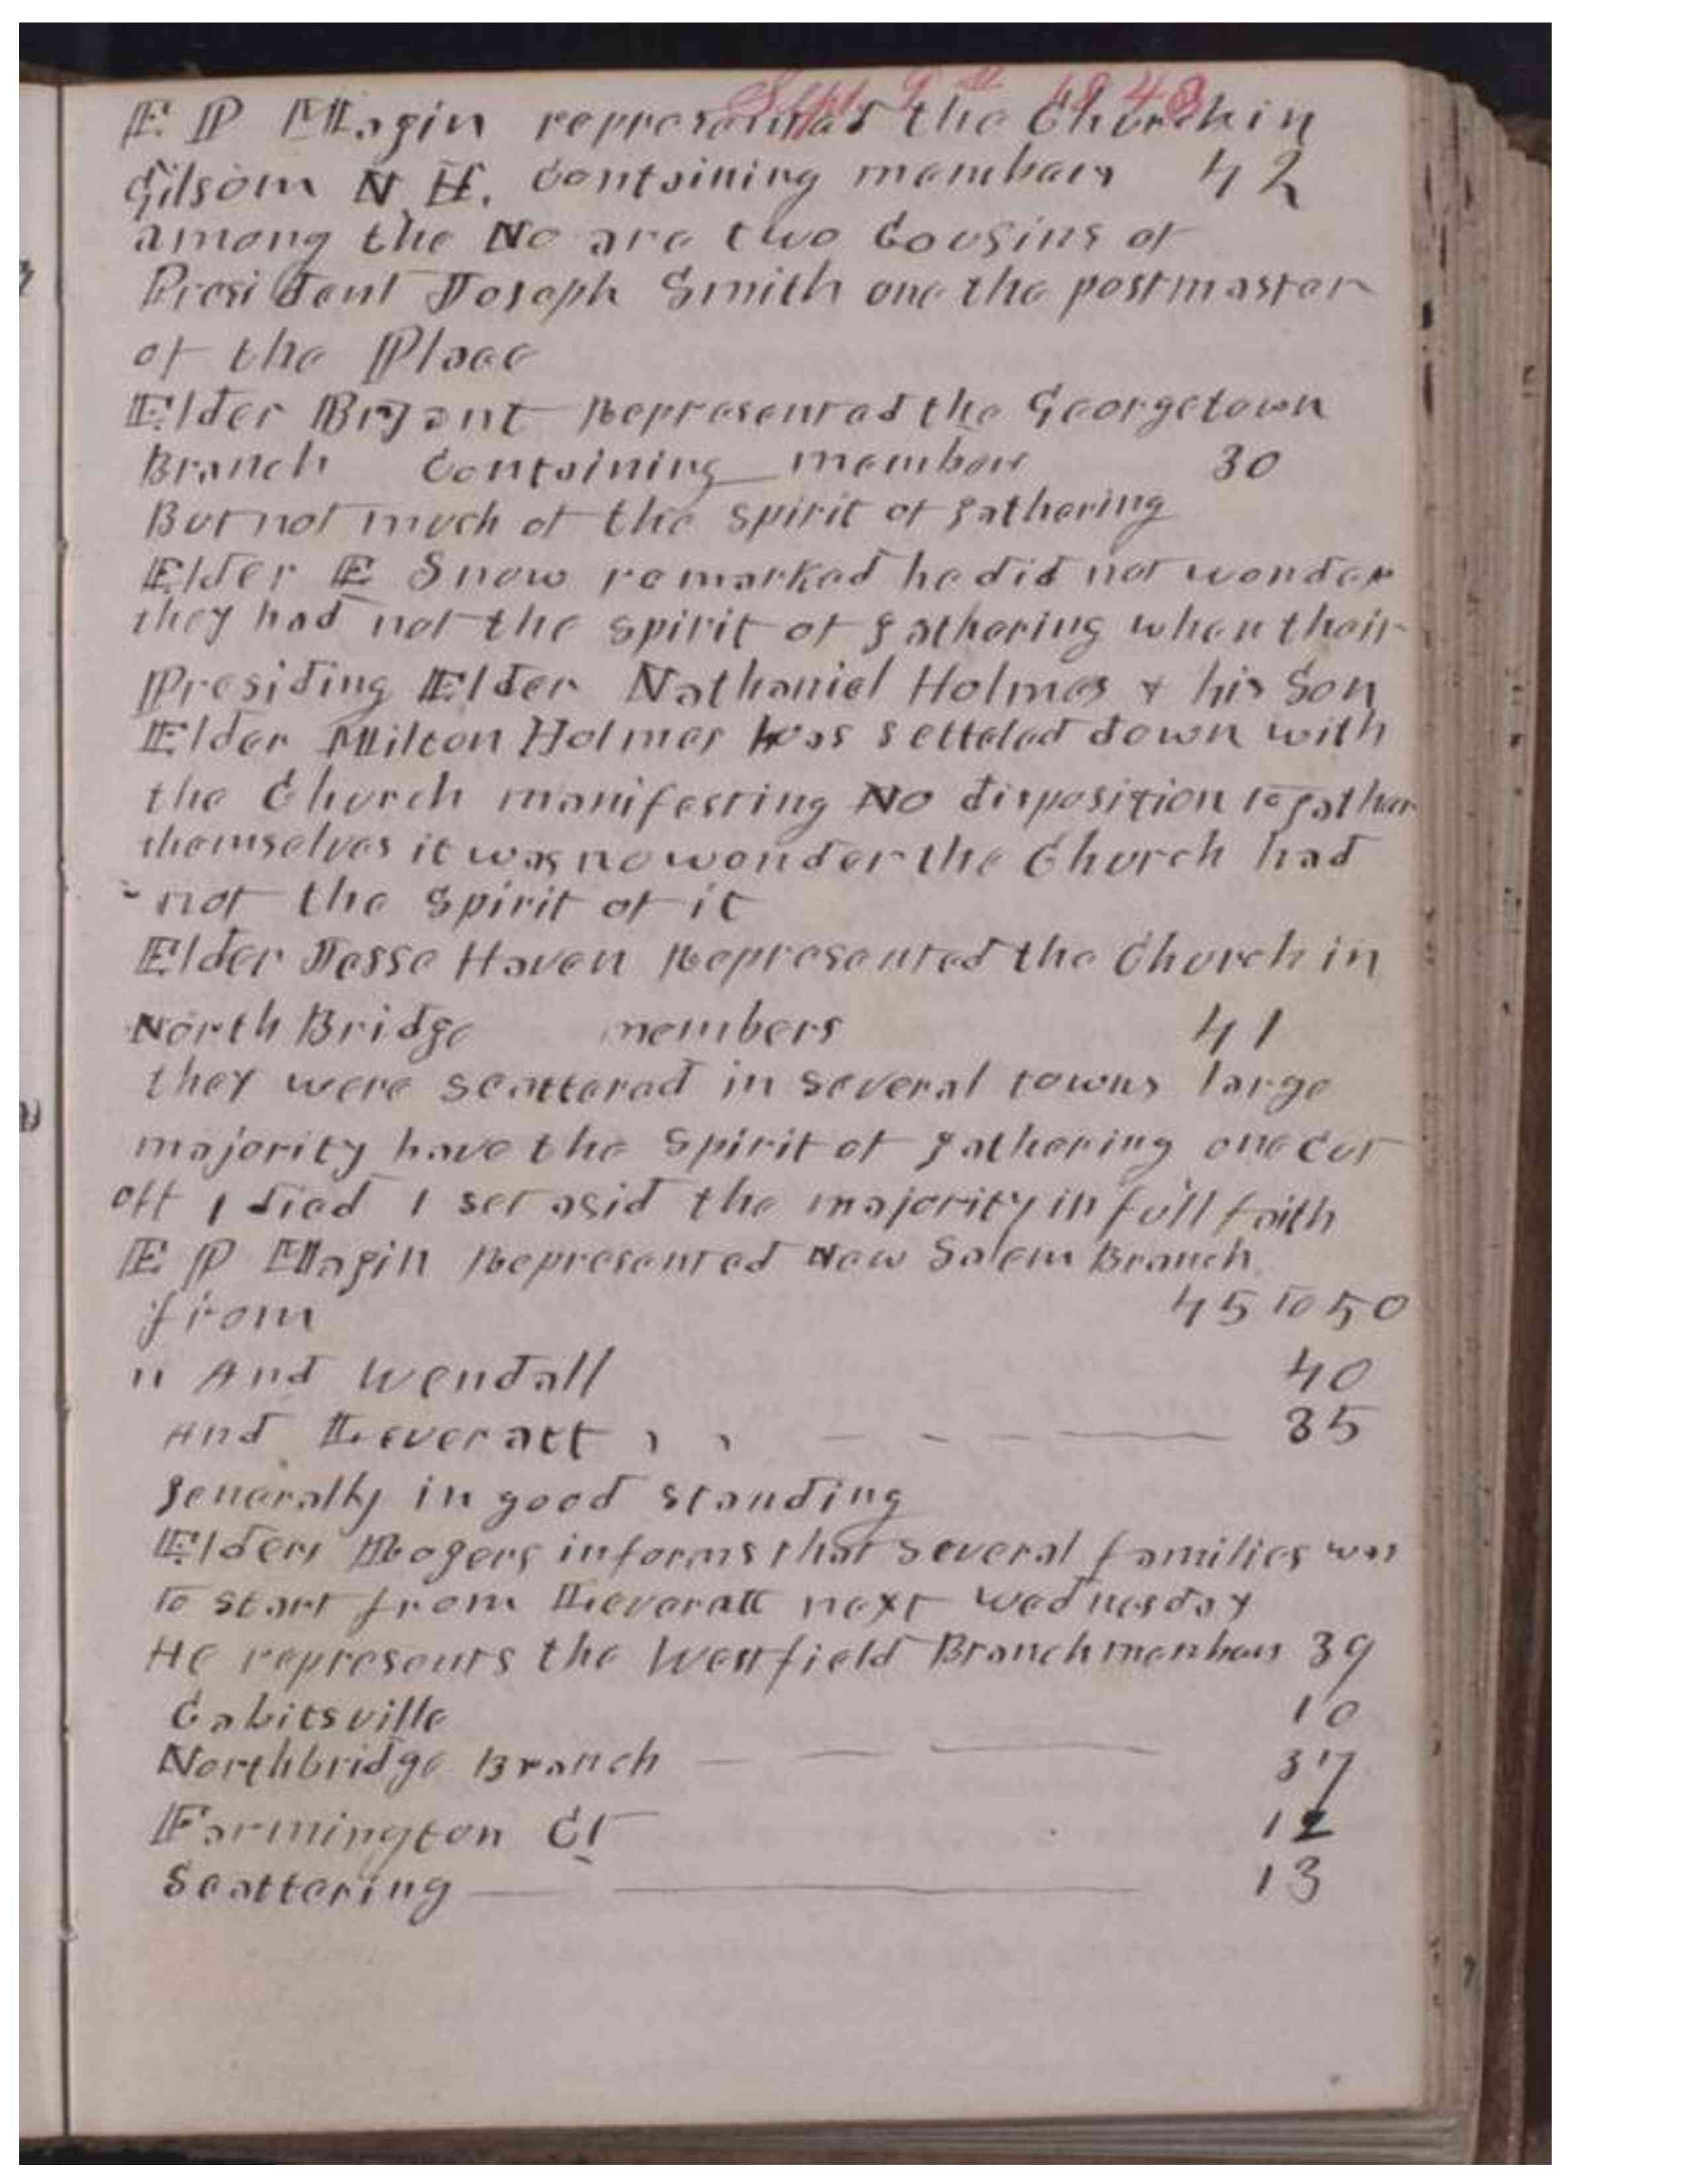 Sept. 9th 1843
E P Magin represented the Church in
Gilsom N H. containing members 42
among the No are two Cousins of
President Joseph Smith one the postmaster
of the Place
Elder Bryant Represented the Georgetown
Branch containing members 30
But not much of the spirit of gathering
Elder E Snow remarked he did not wonder
they had not the spirit of gathering when their
Presiding Elder Nathaniel Holmes & his Son
Elder Milton Holmes was setteled down with
the Church manifesting No disposition to gather
themselves it was no wonder the Church had
not the spirit of it
Elder Jesse Haven Represented the Church in
North Bridge members 41
they were scattered in several towns large
majority have the spirit of gathering one cut
off 1 died 1 set asid the majority in full faith
E P Magin Represented New Salem Branch
from 45 to 50
" And Wendall 40
And Leveratt , , — — — — 35
generally in good standing
Elders Rogers informs that several families was
to start from Leveratt next wednesday
He represents the Westfield Branch members 39
Cabitsville 10
Northbridge Branch — — — 37
Farmington Ct 12
Scattering — — 13